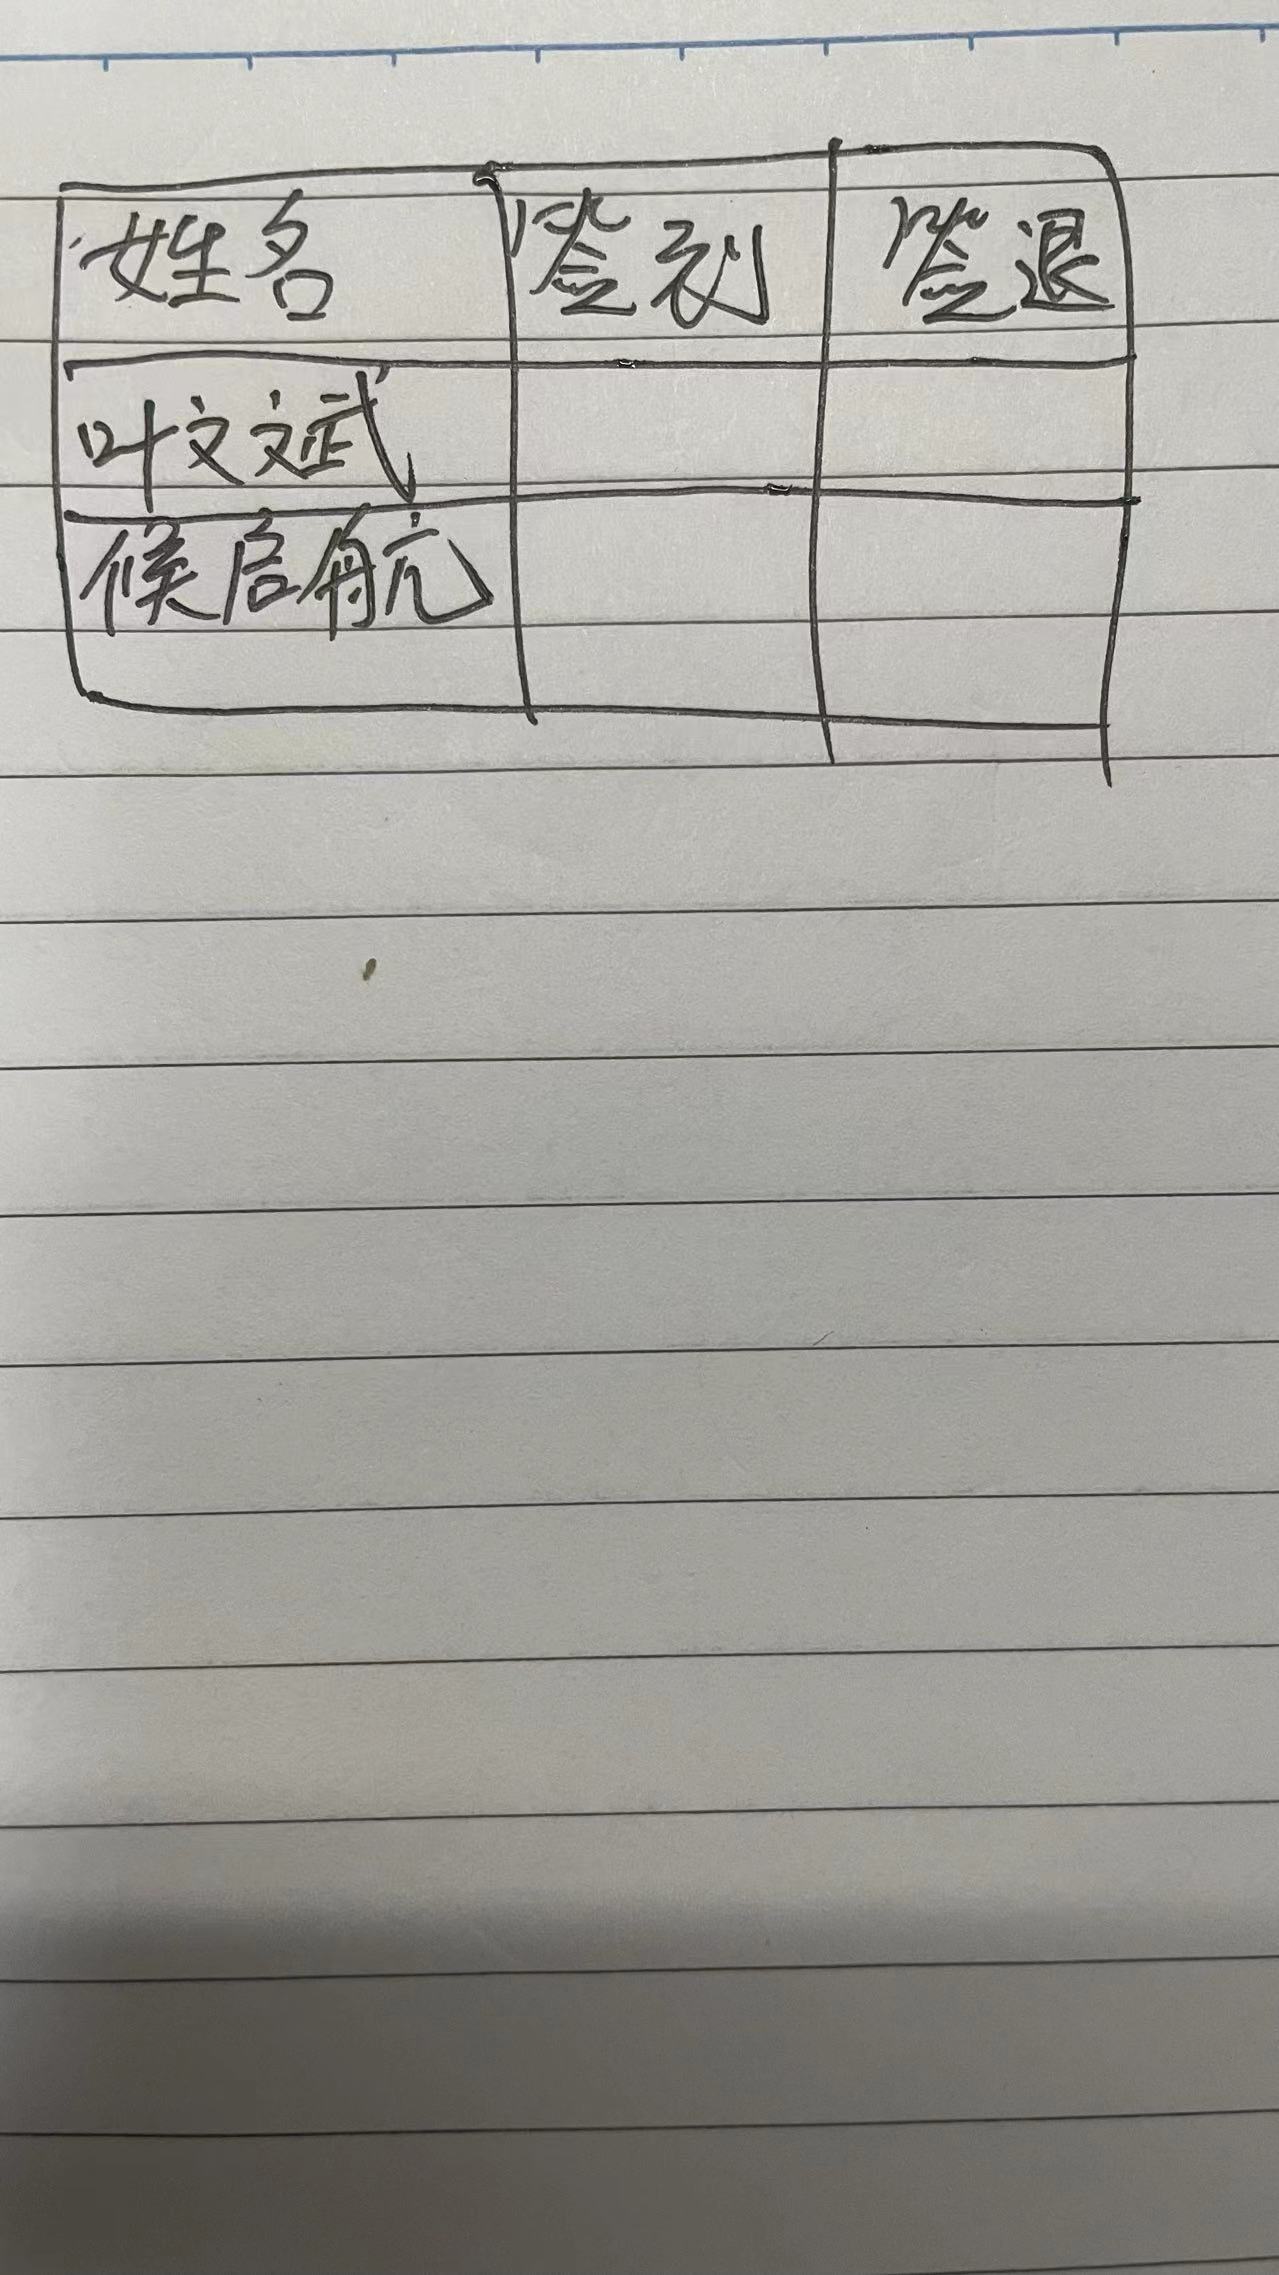 姓名 签到 签退
叶文斌
候启航